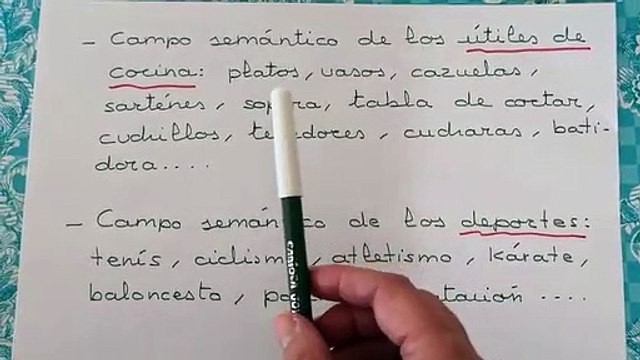 - Campo semántico de los útiles de
cocina: platos, vasos, cazuelas,
sarténes, sopera, tabla de cortar,
cuchillos, tenedores, cucharas, bati-
dora....
- Campo semántico de los deportes:
tenís, ciclismo, atletismo, kárate,
baloncesto,
CARIOCA